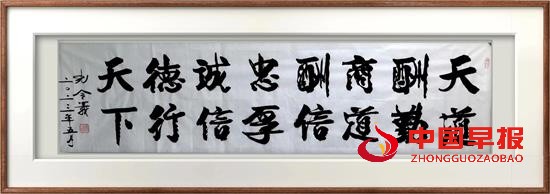 天道
酬勤
商道
酬信
忠孚
诚信
德行
天下
二〇一三年五月
中国早报
ZHONGGUOZAOBAO